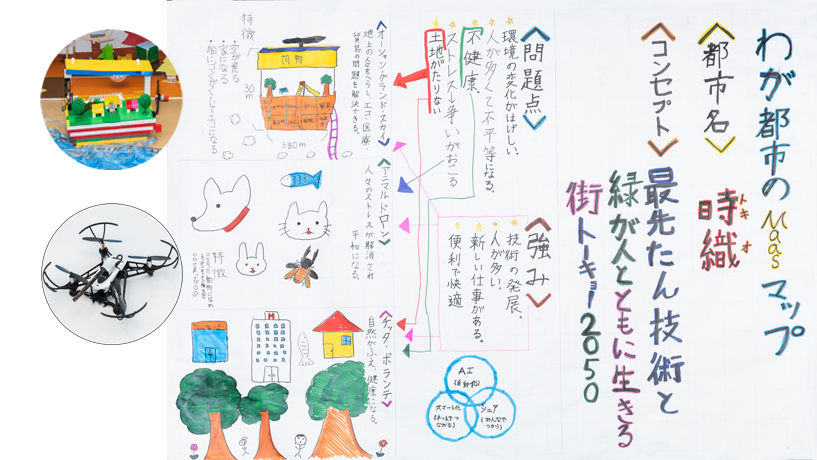 わが都市のMaasマップ
<都市名>
時織
トキオ
<コンセプト>
最先たん技術と
緑が人とともに生きる
街トーキョー2050
<問題点>
環境の変化がはげしい、
人が多くて不平等になる。
不健康、
ストレス→争いがおこる
土地がたりない
<強み>
技術の発展、
人が多い、
新しい仕事がある。
便利で快適
AI
(自動化)
スマート化
(ネットでつながる)
シェア
(みんなでつかう)
<オーシャン・グランド・スカイ>
地上の人をへらし、エコ・医療
貿易の問題を解決できる。
特徴
・空が飛べる
・家になる
30m
380m
荷物
<アニマルドローン>
人々のストレスが解消され
平和になる。
特徴
<チッタ・ボランテ>
自然がふえ、健康になる。
H